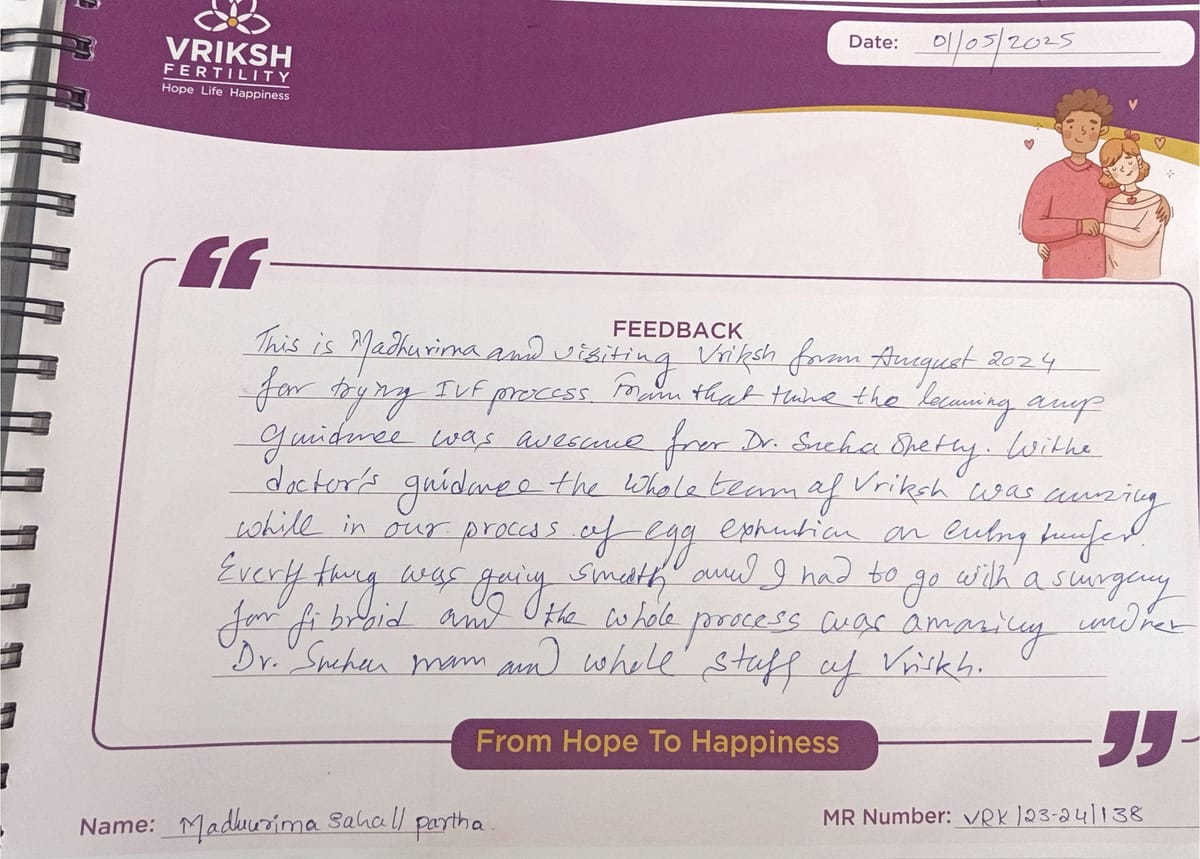 VRIKSH
FERTILITY
Hope Life Happiness
Date: 01/05/2025
FEEDBACK
This is Madhurima and visiting Vriksh from August 2024
for trying IVF process. From that time the
guidance was awesome from Dr. Sneha Shetty. With
doctor's guidance the whole team of Vriksh was amazing
while in our process of egg or
Every thing was going smooth and I had to go with a surgery
for fibroid and the whole process was amazing under
Dr. Sneha mam and whole staff of Vriskh.
From Hope To Happiness
Name: Madhurima Saha // partha
MR Number: VRK/23-24/138